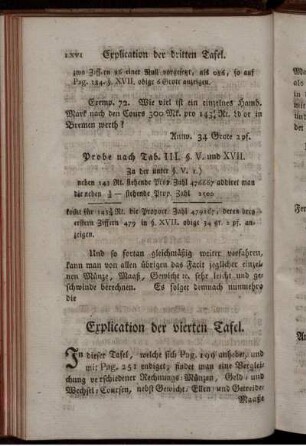 Explication der dritten Tafel.
zwo Ziffern 26 einer Null vorgesetzt, als 026, so auf
Pag. 184. §. XVII. obige 6 Grote anzeigen.
Exemp. 72. Wie viel ist ein einzelnes Hamb.
Mark nach den Cours 300 Mk. pro Rt. Ld'or in
Bremen werth?
Antw. 34 Grote 2 pf.
Probe nach Tab. III. §. V. und XVII.
Zu der unter §. V. 1.)
neben 142 Rt. stehende Prop. Zahl addiret man
die neben stehende Prop. Zahl
kostt für Rt. die Proport. Zahl deren drey
erstern Ziffern 479 in §. XVII. obige 34 gr. 2 pf. an-
zeigen.
Und so fortan gleichmäßig weiter verfahren,
kann man von allen übrigen das Facit jeglicher einzel-
nen Münze, Maaß, Gewicht u. sehr leicht und ge-
schwinde berechnen. Es folget demnach nunmehro
die
Explication der vierten Tafel.
In dieser Tafel, welche sich Pag. 199 anhebet, und
mit Pag. 251 endiget, findet man eine Verglei-
chung verschiedener Rechnungs Münzen, Geld- und
Wechsel-Coursen, nebst Gewicht, Ellen, und Getreide-
Maaße